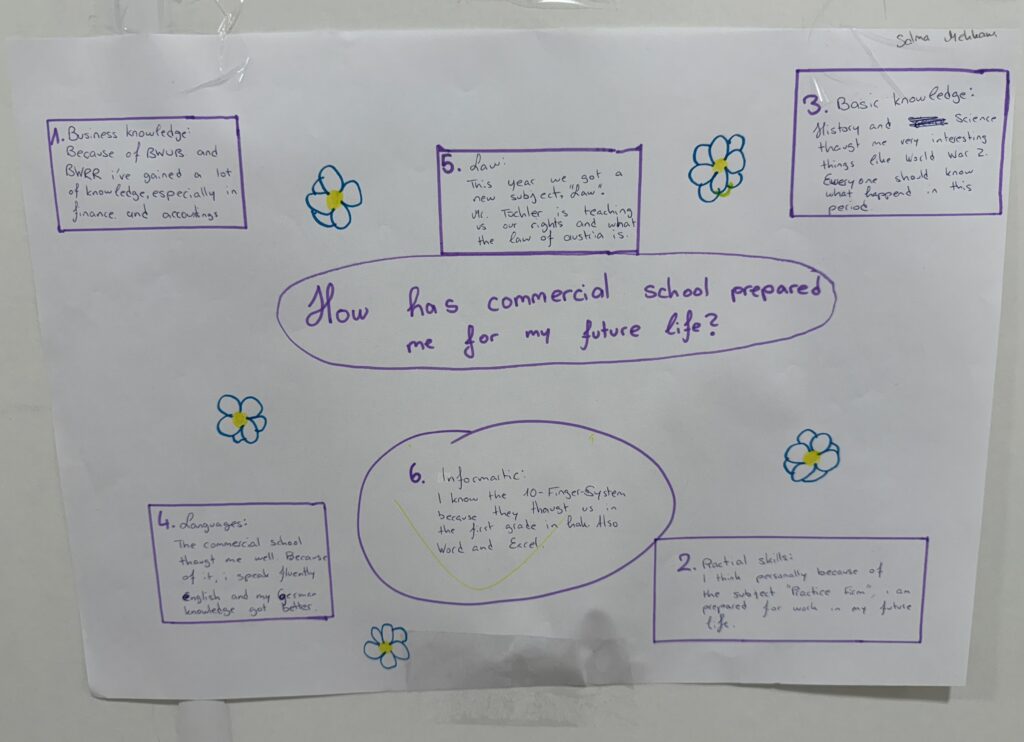 Salma
How has commercial school prepared
me for my future life?
1. Business knowledge:
Because of BWUB and
BWRR i've gained a lot
of knowledge, especially in
finance and accountings
5. Law:
This year we got a
new subject, "Law".
Mr. Tochler is teaching
us our rights and what
the law of austria is.
3. Basic knowledge:
History and Science
thaugt me very interesting
things like World War 2.
Everyone should know
what happend in this
period.
4. Languages:
The commercial school
thaugt me well. Because
of it, i speak fluently
english and my German
knowledge got better.
6. Informartic:
I know the 10-Finger-System
because they thaugt us in
the first grade in hak. Also
Word and Excel.
2. Practial skills:
I think personally because of
the subject "Practice Firm", i am
prepared for work in my future
life.